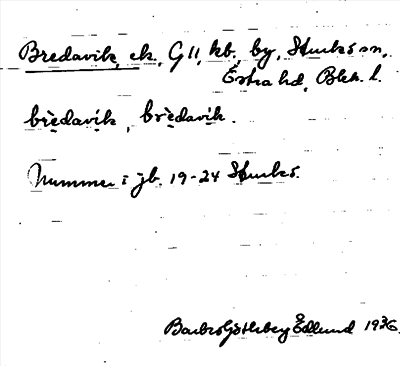 Bredavik, ek., G 11, kb., by, Sturkö sn,
Östra hd, Blek. l.
brèdavik, brèdavik.
Nummer i jb. 19-24 Sturkö.
Barbro Götleborg Edlund 1936.